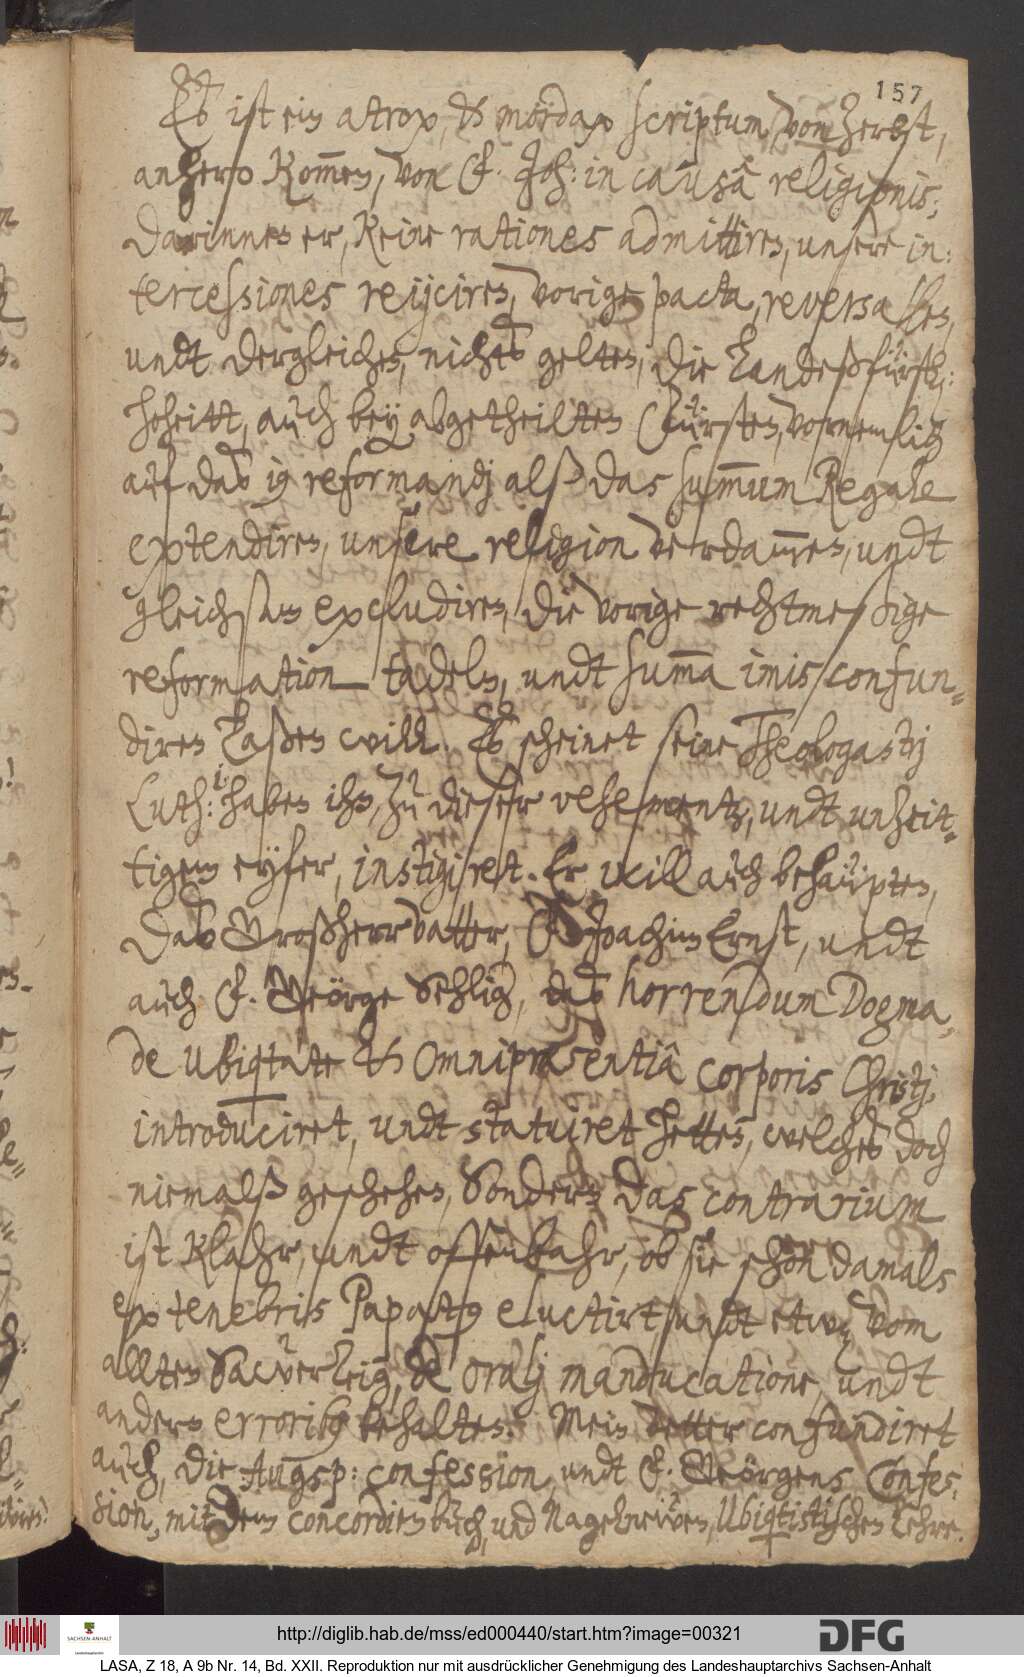 157
Es ist ein atrox, et mordax scriptum, von Zerbst,
anhero kom̄en, von F. Joh: in causâ religionis;
Darinnen er, keine rationes admittiren, unsere in:
tercessiones reijciren, vorige pacta, reversalles,
undt dergleichen, nichts gelten, die Landeßfürstl:
hoheitt, auch bey abgetheilten Fürsten, vornemlich
auf das ius reformandj alß das sum̄um Regale
extendiren, unsere religion verdam̄en, undt
gleichsam excludiren, die vorige rechtmeßige
reformation tadeln, undt sum̄a imis confun-
diren laßen will. Es scheinet seine Theologastrj
Luth:i: haben ihn, zu dieser vehementz, undt unzeit-
tigem eyfer, instigiret. Er will auch behaupten,
Das Großherrvatter, F. Joachim Ernst, undt
auch F. Geörge Sehlig, das horrendum Dogma,
de Ubiqtate et Omnipræsentiâ corporis Christj,
introduciret, undt statuiret hetten, welches doch
niemalß geschehen, Sondern das contrarium
ist klahr, undt offenbahr, ob sie schon damals
ex tenebris Papatus eluctirt undt etwas vom
allten Sawerteig, de oralj manducatione, undt
andern erroribus behalten. Mein vetter confundiret
auch, die Augsp: confession, undt F. Geörgens Confes:
sion, mit dem concordien buch, und Nagelneuwen, Ubiqtistischen Lehre.
http://diglib.hab.de/mss/ed000440/start.htm?image=00321
SACHSEN-ANHALT
DFG
LASA, Z 18, A 9b Nr. 14, Bd. XXII. Reproduktion nur mit ausdrücklicher Genehmigung des Landeshauptarchivs Sachsen-Anhalt